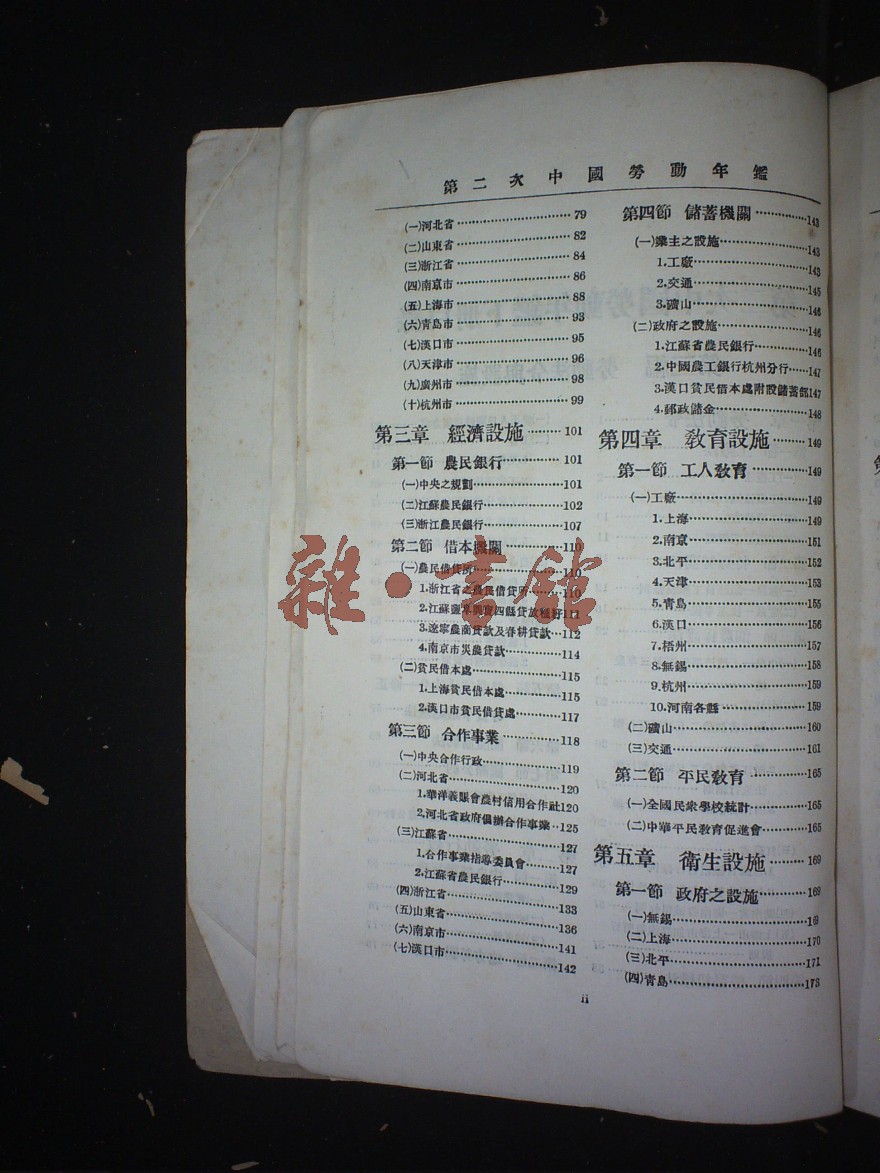 第二次中國勞動年鑑
(一)河北省…………79
(二)山東省…………82
(三)浙江省…………84
(四)南京市…………86
(五)上海市…………88
(六)青島市…………93
(七)漢口市…………95
(八)天津市…………96
(九)廣州市…………98
(十)杭州市…………99
第三章 經濟設施………101
第一節 農民銀行………101
(一)中央之規劃…………101
(二)江蘇農民銀行…………102
(三)浙江農民銀行…………107
第二節 借本機關………110
(一)農民借貸所…………110
1.浙江省之農民借貸所………110
2.江蘇 四縣貸放 111
3.遼寧農商貸款及春耕貸款…112
4.南京市災農貸款…………114
(二)貧民借本處…………115
1.上海貧民借本處…………115
2.漢口市貧民借貸處………117
第三節 合作事業………118
(一)中央合作行政…………119
(二)河北省…………120
1.華洋義賑會農村信用合作社120
2.河北省政府倡辦合作事業…125
(三)江蘇省…………127
1.合作事業指導委員會………127
2.江蘇省農民銀行…………129
(四)浙江省…………133
(五)山東省…………136
(六)南京市…………141
(七)漢口市…………142
第四節 儲蓄機關…………143
(一)業主之設施…………143
1.工廠…………143
2.交通…………145
3.礦山…………146
(二)政府之設施…………146
1.江蘇省農民銀行…………146
2.中國農工銀行杭州分行……147
3.漢口貧民借本處附設儲蓄部147
4.郵政儲金…………148
第四章 教育設施………149
第一節 工人教育…………149
(一)工廠…………149
1.上海…………149
2.南京…………151
3.北平…………152
4.天津…………153
5.青島…………155
6.漢口…………156
7.梧州…………157
8.無錫…………158
9.杭州…………159
10.河南各縣…………159
(二)礦山…………160
(三)交通…………161
第二節 平民教育…………165
(一)全國民衆學校統計………165
(二)中華平民教育促進會……165
第五章 衛生設施………169
第一節 政府之設施………169
(一)無錫…………169
(二)上海…………170
(三)北平…………171
(四)青島…………173
ii
雜·書館